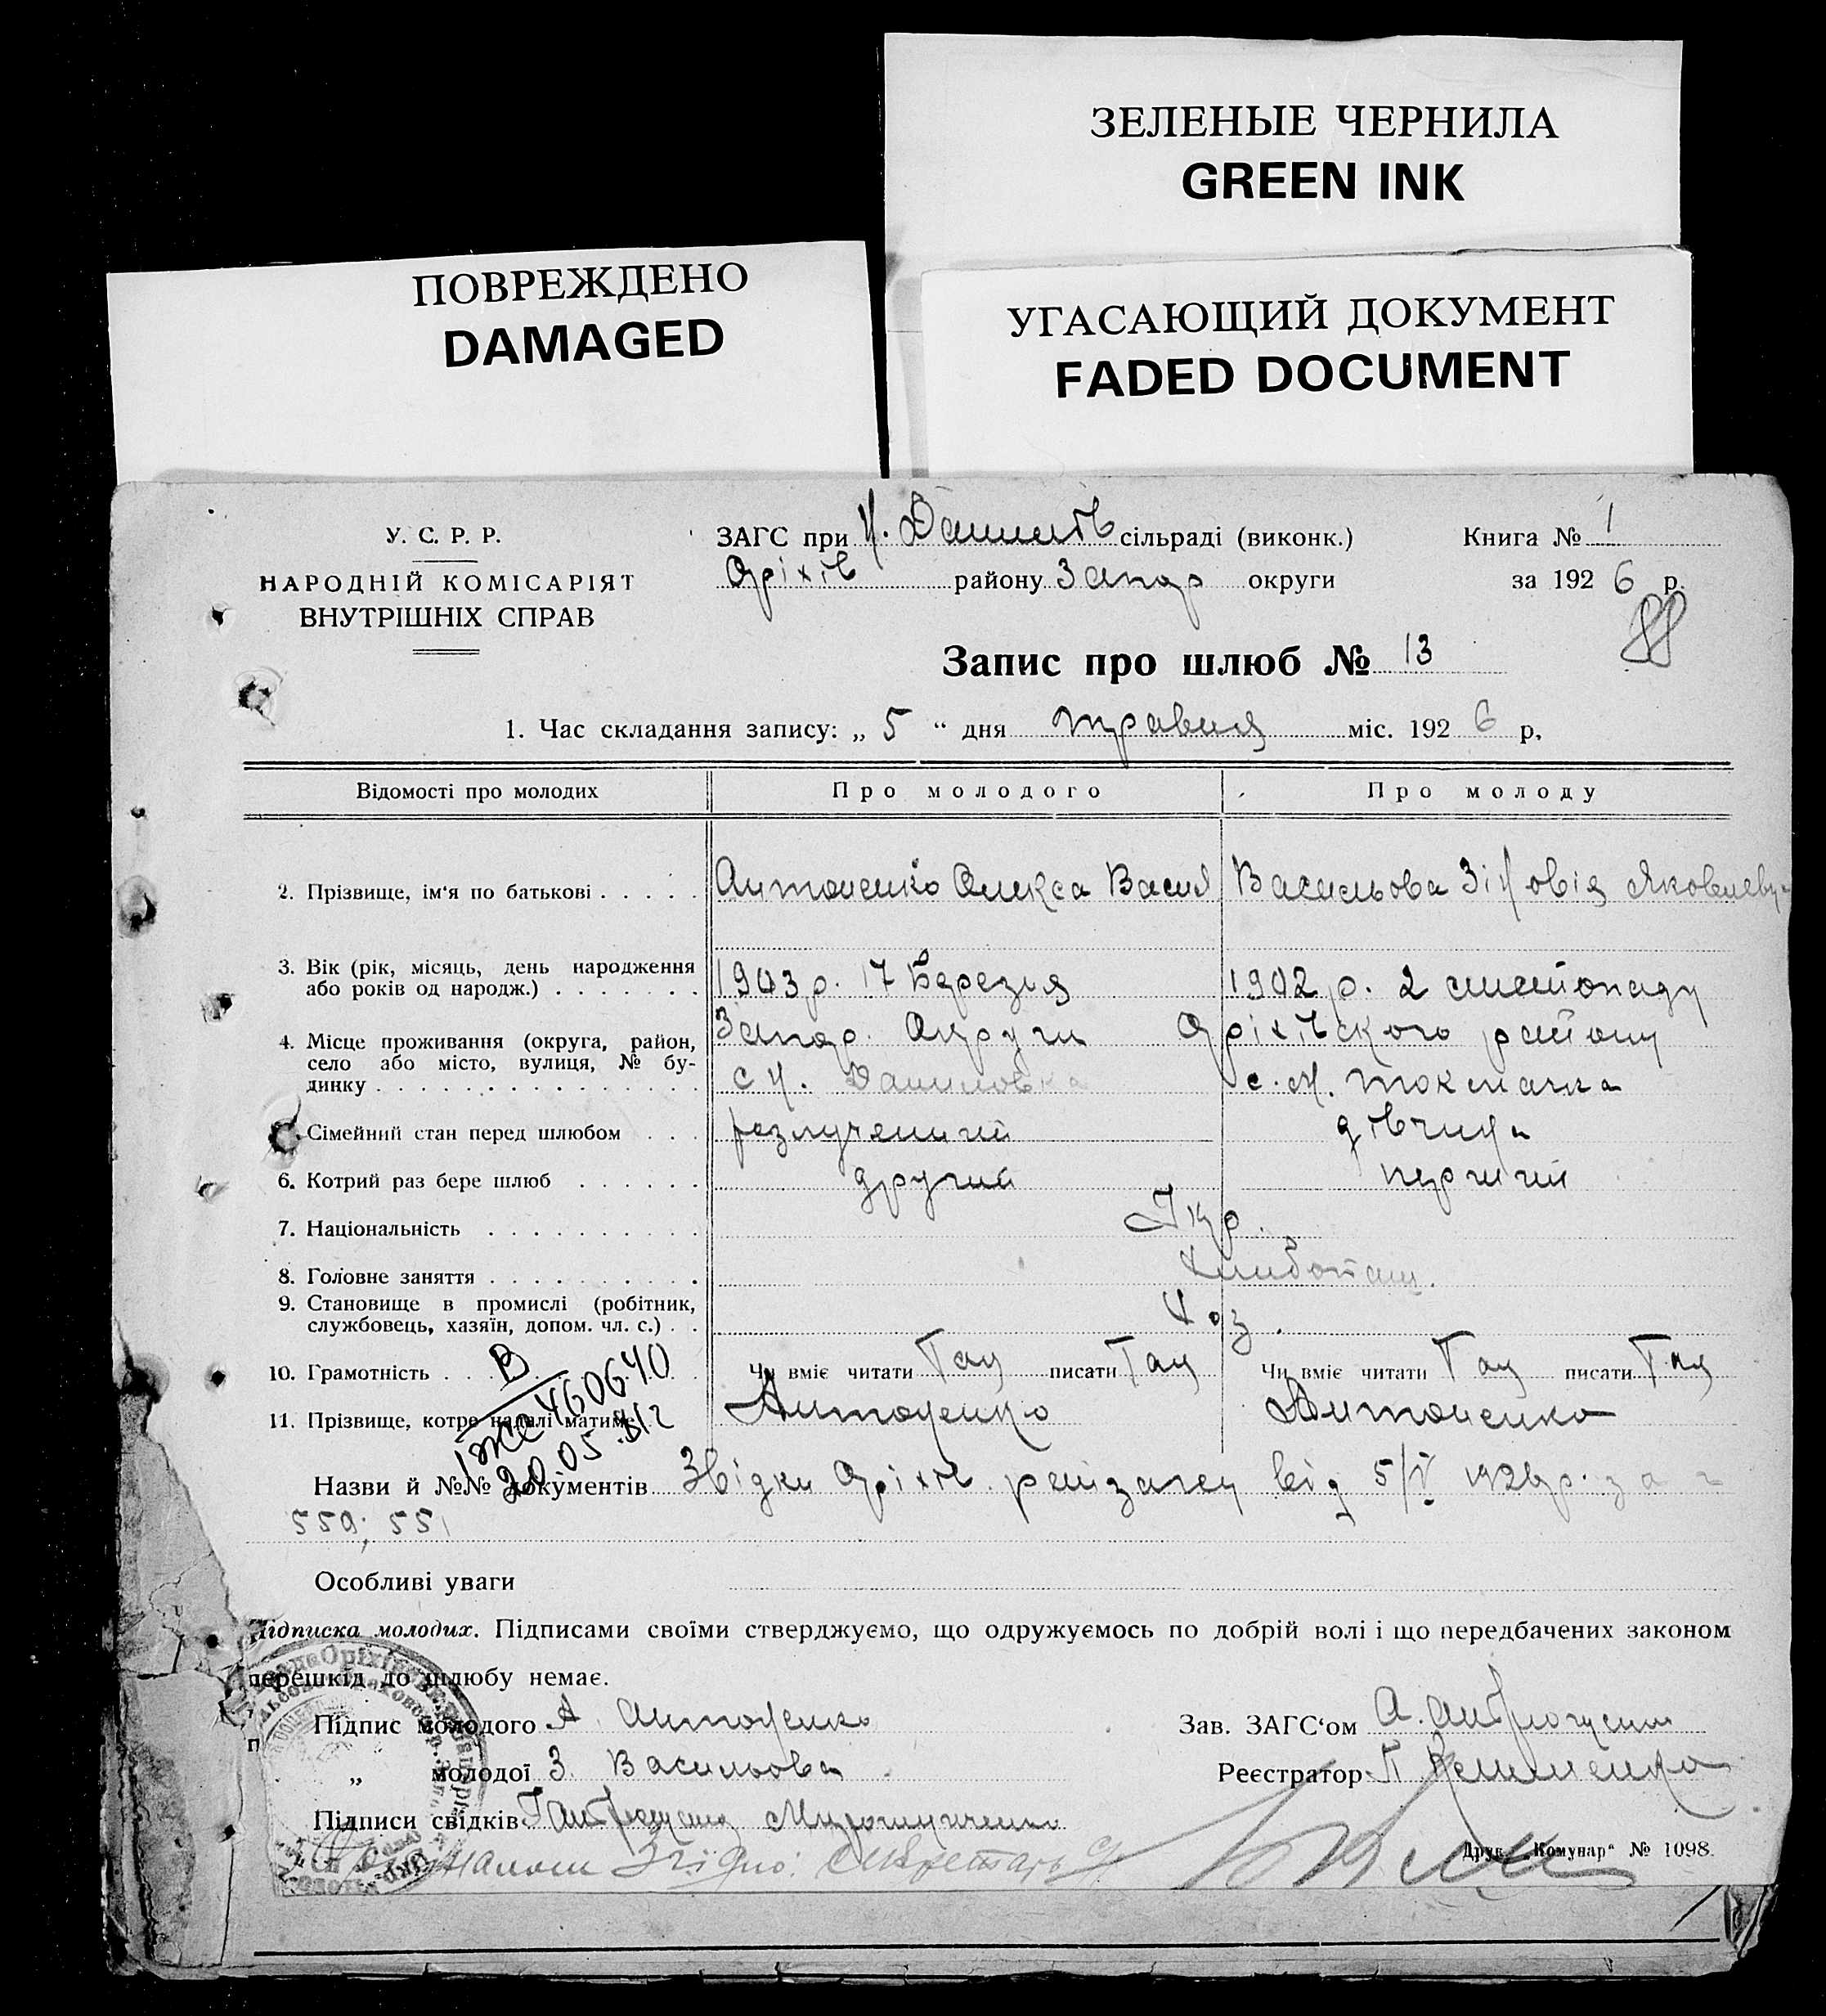 ЗЕЛЕНЫЕ ЧЕРНИЛА
GREEN INK
ПОВРЕЖДЕНО
DAMAGED
УГАСАЮЩИЙ ДОКУМЕНТ
FADED DOCUMENT
У. С. Р. Р.
НАРОДНІЙ КОМІСАРІЯТ
ВНУТРІШНІХ СПРАВ
ЗАГС при Н. Данилів сільраді (виконк.)
Книга № 1
Оріхів району Запор округи
за 192 6 р.
88
Запис про шлюб № 13
1. Час складання запису: „ 5 “ дня травня міс. 192 6 р.
Відомості про молодих Про молодого Про молоду
2. Прізвище, ім'я по батькові Антоненко Олекса Васил Васильова Зіновія Яковлевн
3. Вік (рік, місяць, день народження
або років од народж.) 1903 р. 17 Березня 1902 р. 2 листопаду
4. Місце проживання (округа, район, Запор. Округи Оріхівского району
село або місто, вулиця, № бу-
динку с Н. Даниловка с. М. Токмачка
Сімейний стан перед шлюбом розлучений дівчина
6. Котрий раз бере шлюб другий перший
7. Національність Укр.
8. Головне заняття Хлібопаш.
9. Становище в промислі (робітник,
службовець, хазяїн, допом. чл. с.) Хоз.
10. Грамотність Чи вміє читати Так писати Так Чи вміє читати Так писати Так
11. Прізвище, котре надалі матиме Антоненко Антоненко
460640
20 05
Назви й №№ документів Звідки Оріхів. райзагсу від 5/V 1926 р. за
559; 551
Особливі уваги
Підписка молодих. Підписами своїми стверджуємо, що одружуємось по добрій волі і що передбачених законом
перешкід до шлюбу немає.
Підпис молодого А Антоненко
Зав. ЗАГС'ом А.
„ молодої З. Васильова
Реєстратор П Клименко
Підписи свідків Мирошниченко
Згідно: секретарь
Друк. „Комунар“ № 1098.